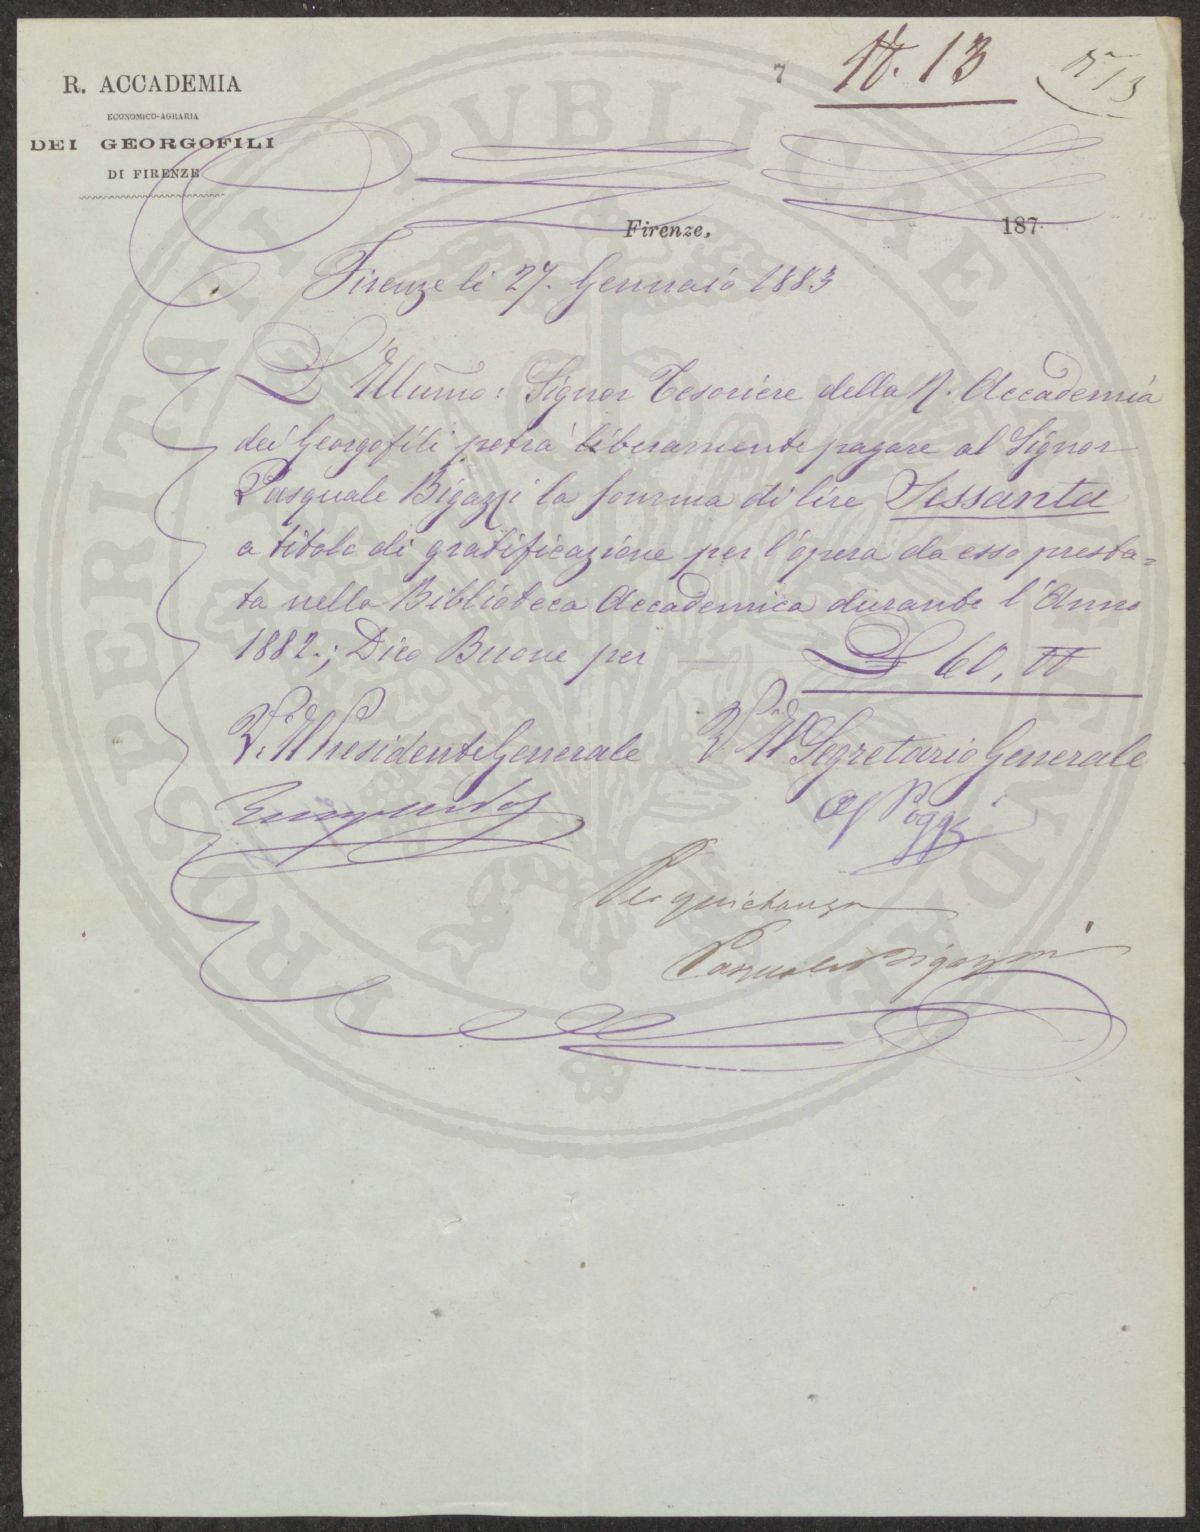 R. ACCADEMIA
ECONOMICO-AGRARIA
DEI GEORGOFILI
DI FIRENZE
N. 13
N° 13
Firenze, 187
Firenze li 27. Gennaio 1883
L'Illumo: Signor Tesoriere della R. Accademia
dei Georgofili potrà liberamente pagare al Signor
Pasquale Bigazzi la somma di lire Sessanta
a titolo di gratificazione per l'opera da esso presta=
ta nella Biblioteca Accademica durante l'Anno
1882.; Dico Buone per L 60,00
V. Il Presidente Generale V. Il Segretario Generale
Poggi
Per quietanza
Pasquale Bigazzi
PROSPERITATI PVBLICAE AVGENDAE